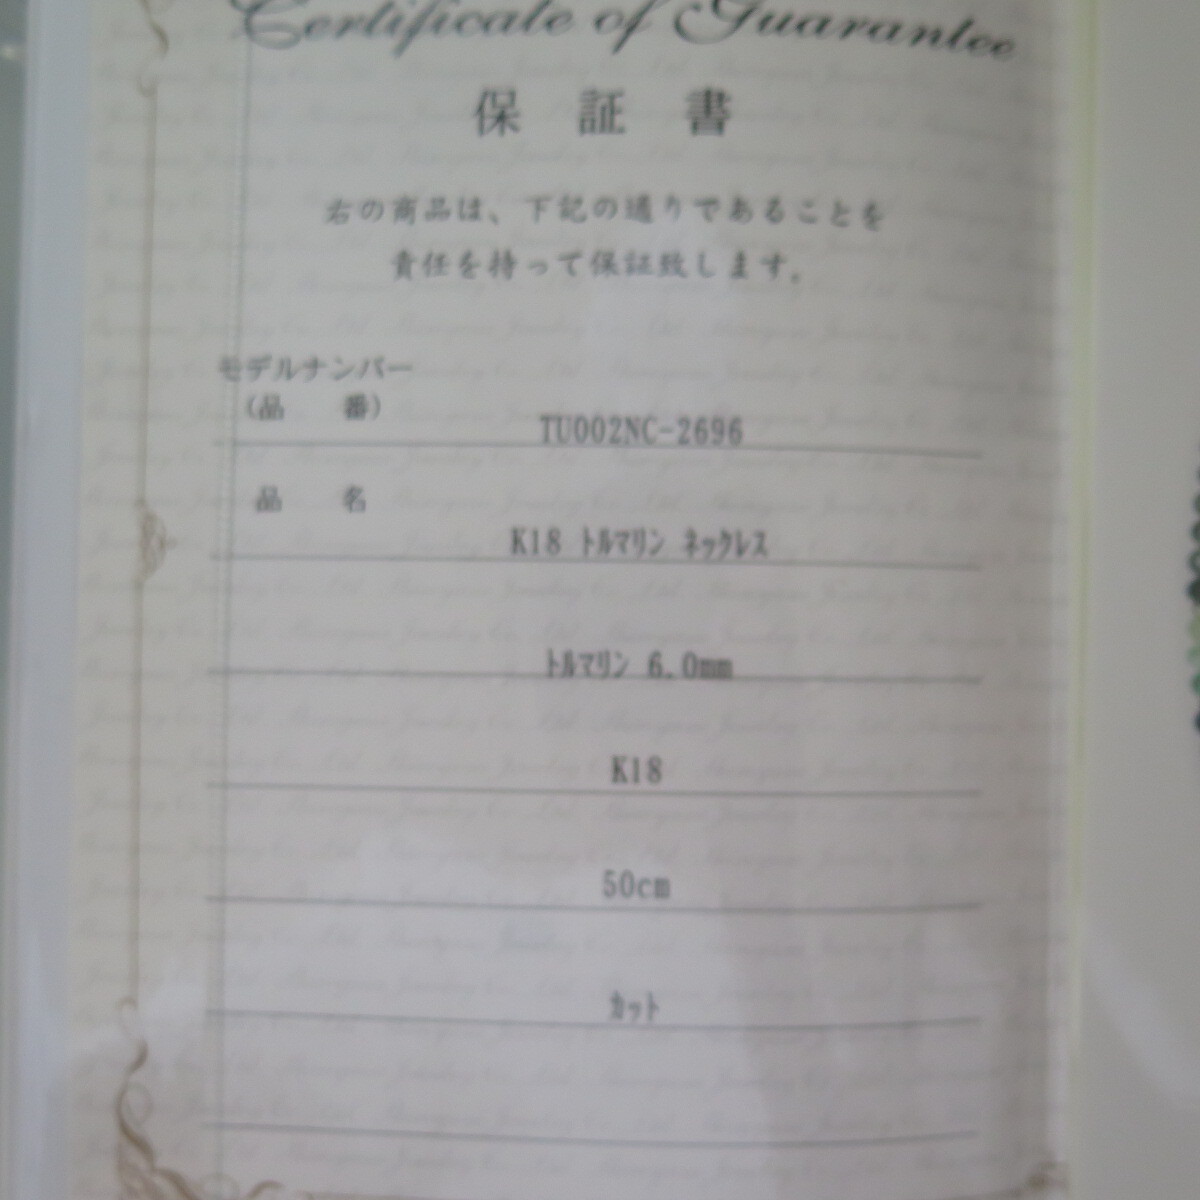 Certificate of Guarantee
保証書
右の商品は、下記の通りであることを
責任を持って保証致します。
モデルナンバー
(品番)
TU002NC-2696
品名
K18 トルマリン ネックレス
トルマリン 6.0mm
K18
50cm
カット